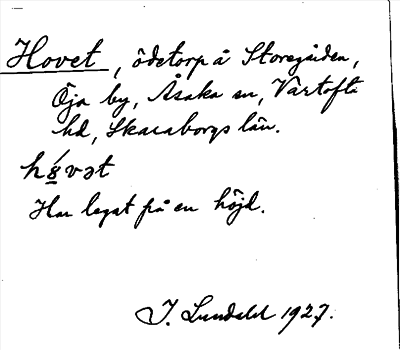 Hovet, ödetorp å Storegården,
Öja by, Åsaka sn, Vartofta
hd, Skaraborgs län.
hȯ́vət
Har legat på en höjd.
I. Lundahl 1927.